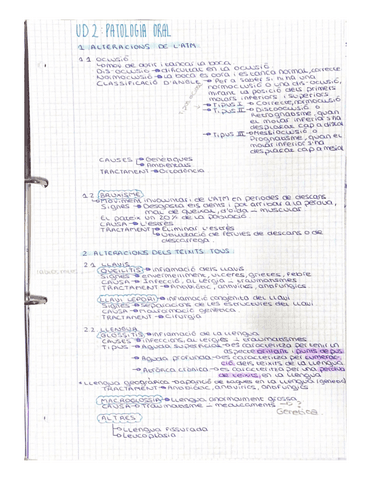 UD 2: PATOLOGIA ORAL
1. ALTERACIONS DE L'ATM
1.1 OCLUSIÓ
→ Mov. de obrir i tancar la boca
Dis-oclusió → dificultat en la oclusió
Normoclusió → la boca es obra i es tanca normal, correcte
CLASSIFICACIÓ D'ANGLE → Per a saber si hi ha una
normoclusió o una dis-oclusió,
mirant la posició dels primers
molars inferiors i superiors
→ Tipus I → Correcte, normoclusió
→ Tipus II → Distoclusió o
Retrognasime, quan
el molar inferior s'ha
desplaçat cap a distal
→ Tipus III → Mesioclusió o
Prognasime, quan el
molar inferior s'ha
desplaçat cap a mesial
CAUSES → Genètiques
→ Ambientals
TRACTAMENT → Ortodòncia
1.2 BRUXISME
→ Moviment involuntari de l'ATM en períodes de descans
Signes → Desgasta els dents i pot arribar a la
mal de queixal, d'oïda - muscular
El pateix un 20% de la població
CAUSA → L'estrés
TRACTAMENT → Eliminar l'estrés
→ Utilització de fèrules de descans o de
descàrrega.
2. ALTERACIONS DELS TEIXITS TOUS
2.1 LLAVIS
QUEILITIS → Inflamació dels llavis
Signes → envermelliment, úlceres, grietes, febre
CAUSA → Infecció, al·lèrgia, traumatismes
TRACTAMENT → Antibiòtic, antivirics, antifúngics
LLAVI LEPORÍ → Inflamació congènita del llavi
Signes → Separacions de les estructures del llavi
CAUSA → Malformació genètica
TRACTAMENT → Cirurgia
2.2 LLENGUA
GLOSSITIS → Inflamació de la llengua
CAUSES → Infeccions, al·lèrgies i traumatismes
TIPUS → Aguda superficial → es caracteritza per tenir un
aspecte brillant - punts de pus
→ Aguda profunda → es caracteritza per
dels teixits de la llengua
→ Atròfica crònica → es caracteritza per una pèrdua
de teixits, en la llengua
• Llengua geogràfica → aparició de taques en la llengua (genètica)
TRACTAMENT → Antibiòtic, antivírics, antifúngics
MACROGLÒSSIA → Llengua anormalment grossa
CAUSA → Traumatisme - medicaments
Genètica
ALTRES
→ Llengua fissurada
→ Leucoplàsia